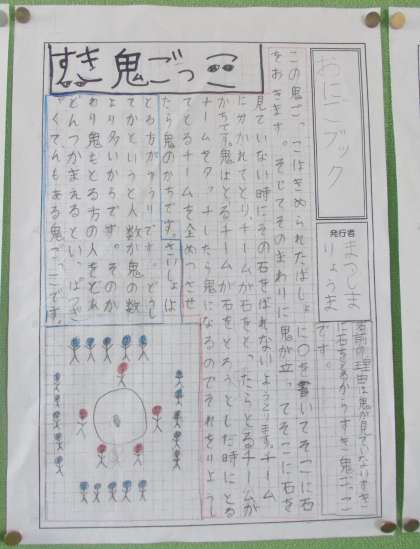 おにごブック
発行者
まつしま
りょうま
名前の理由は鬼が見ていないすきに
に石をとるからすき鬼ごっこ
です。
すき鬼ごっこ
この鬼ごっこはきめられたばしょに○を書いてそこに石
をおきます。そしてそのまわりに鬼が立ってそこに石を
見ていない時にその石をばれないようにとります。チーム
に分かれてとり、チームが石をとったらとるチームが
かちです。鬼はとるチームが石をとろうとした時にとる
チームをタッチしたら鬼になるのでそれをりようし
てとるチームを全めつさせ
たら鬼のかちです。さいしょは
とる方がゆうりです。どうし
てかというと人数が鬼の数
より多いからです。そのか
わり鬼もとる方の人をどん
どんつかまえるという、
くてんもある鬼ごっこです。